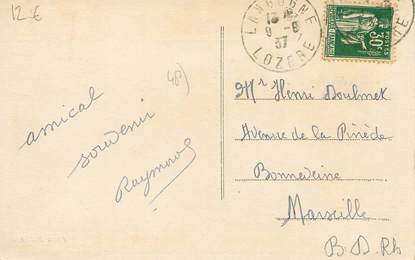 12.€
LANGOGNE
9 -8
37
LOZERE
POSTES
30c
48)
amical
souvenir
Raymond
Mr Henri Doulmet
Avenue de la Pinède
Bonneveine
Marseille
B. D. Rh